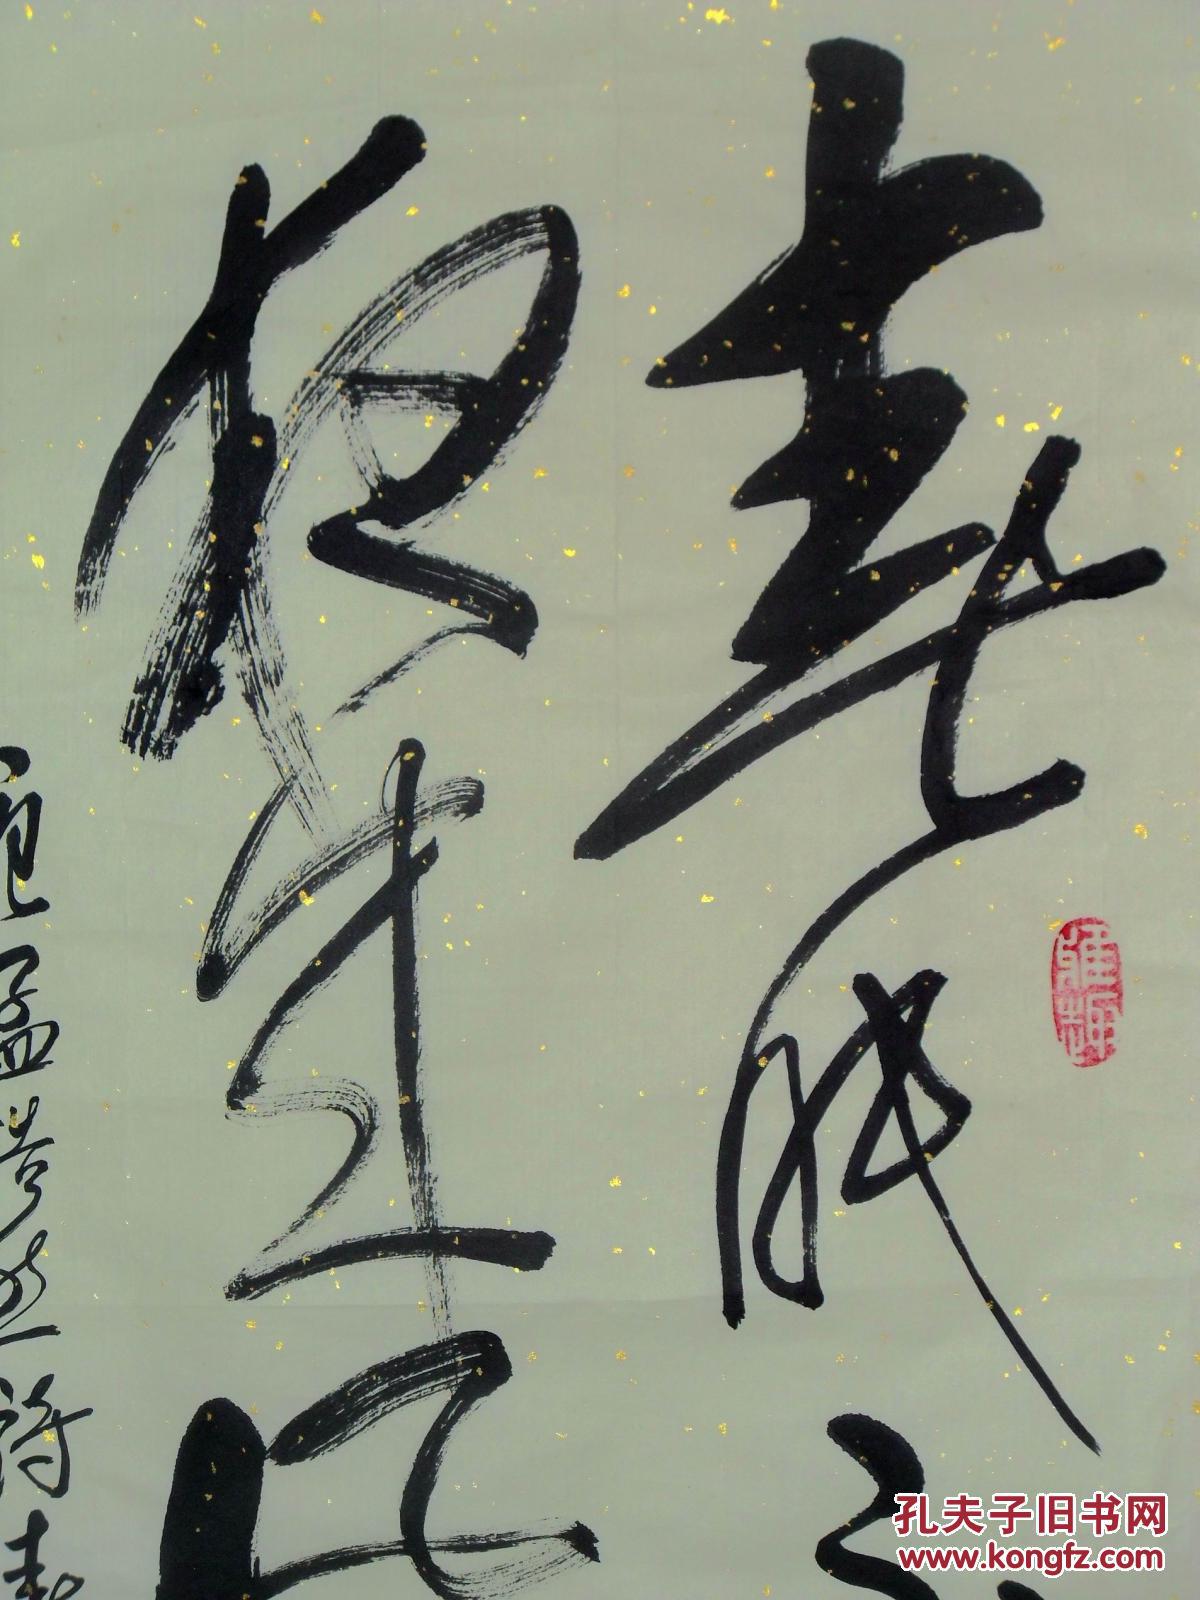 春眠
夜来风
唐孟浩然诗春
孔夫子旧书网
www.kongfz.com